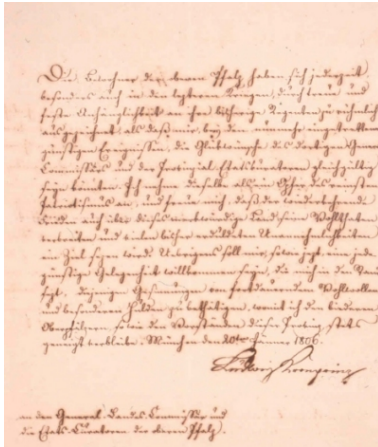 Die Bewohner der obern Pfalz, haben sich jederzeit,
besonders auch in den letzteren Kriegen, durch treue und
feste Anhänglichkeit an ihre bisherige Regenten zu rühmlich
ausgezeichnet, als daß mir, bey den nunmehr eingetrettenen
günstigen Ereignissen, die Glükwünsche des dortigen General
Commissärs und der Provinzial-Etatskuratoren gleichgültig
seyn könnten. Ich nehme dieselbe als ein Opfer des reinsten
Patriotismus an, und freue mich, daß der wiederkehrende
Frieden auch über dieses merkwürdige Land seine Wohlthaten
verbreiten und vielen bisher erduldeten Unannehmlichkeiten
ein Ziel sezen wird. Uebrigens soll mir, so wie jezt, eine jede
günstige Gelegenheit willkommen seyn, die mich in den Stand
sezt, diejenige Gesinnungen von fortdaurendem Wohlwollen
und besonderen Hulden zu bethätigen, womit ich den biederen
Oberpfälzern, so wie den Vorständen dieser Provinz stets
geneigt verbleibe. München den 20ten Jänner 1806.
Ludwig Kronprinz
An den General-Landes-Commissär und
die Etats-Curatoren der oberen Pfalz.